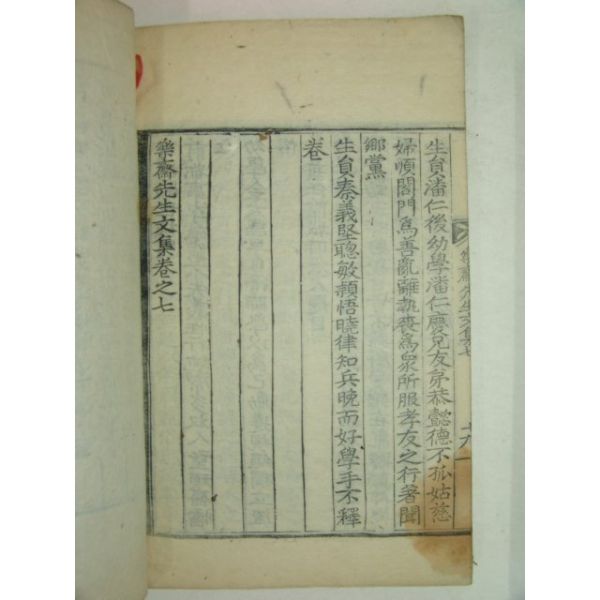 生員潘仁後幼學潘仁慶兄友弟恭懿德不孤姑慈
婦順閤門爲善亂離執喪爲衆所服孝友之行著聞
鄉黨
生員秦義堅聰敏穎悟曉律知兵晩而好學手不釋
卷
樂齋先生文集卷之七